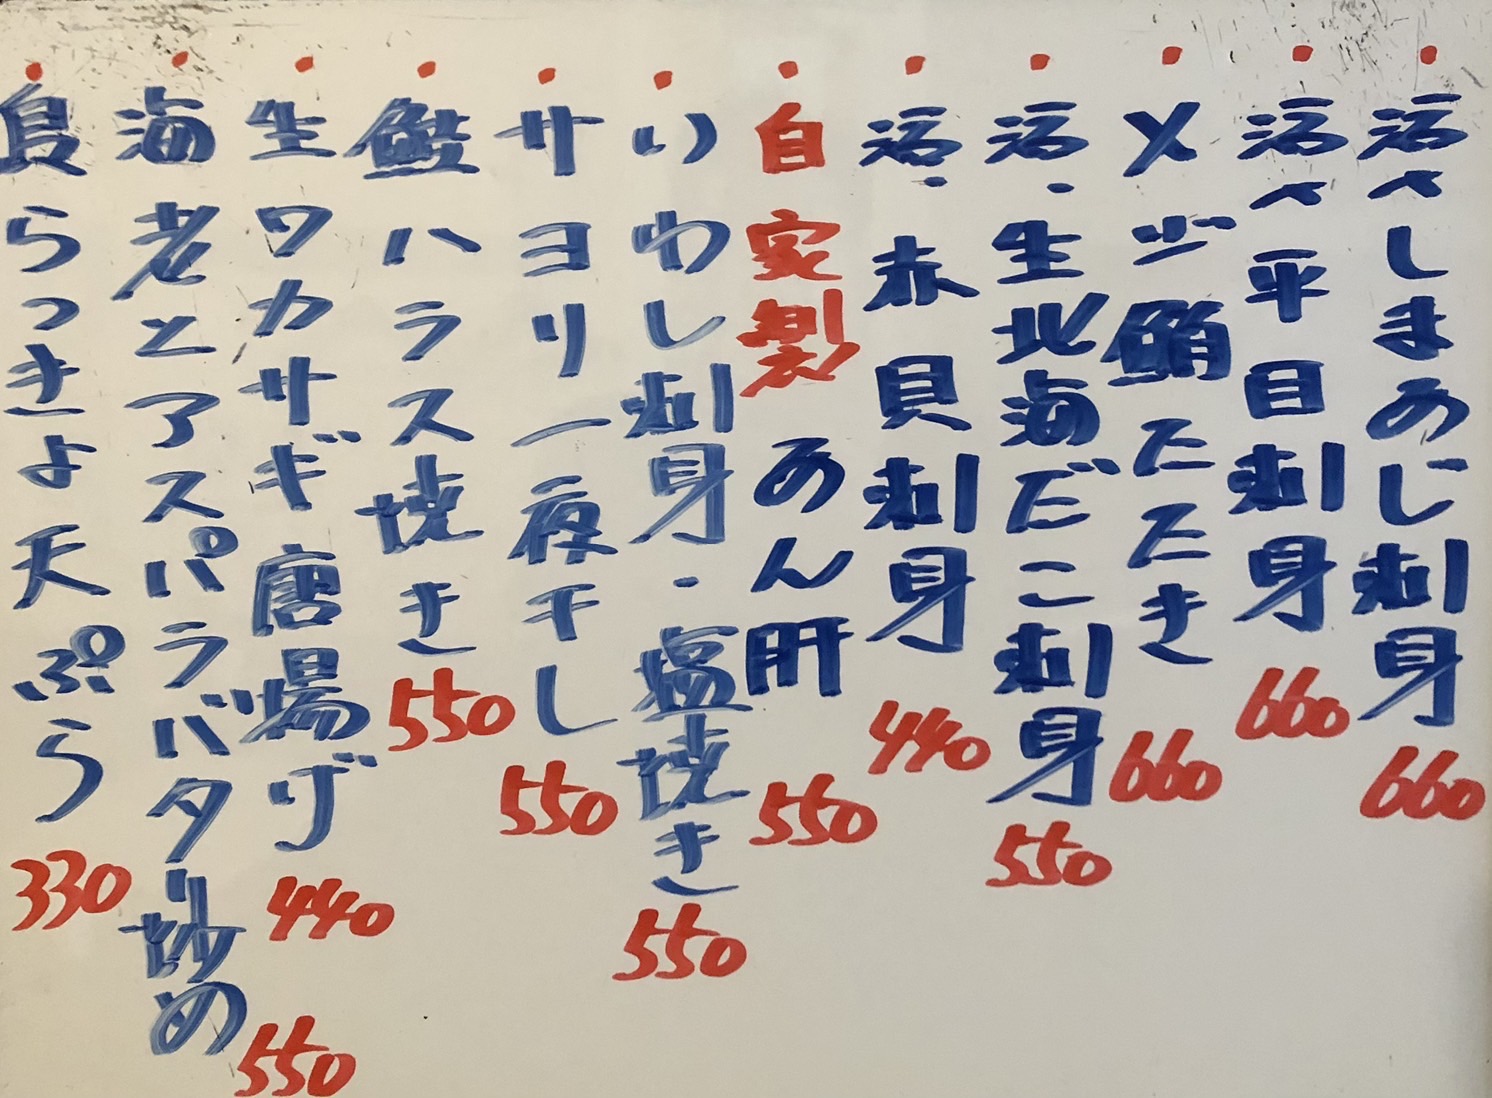 活〆しまあじ刺身 660
活〆平目刺身 660
メジ鮪たたき 660
活・生北海だこ刺身 550
活・赤貝刺身 440
自家製 あん肝 550
いわし刺身・塩焼き 550
サヨリ一夜干し 550
鮭ハラス焼き 550
生ワカサギ唐揚げ 440
海老とアスパラバター炒め 550
島らっきょ天ぷら 330